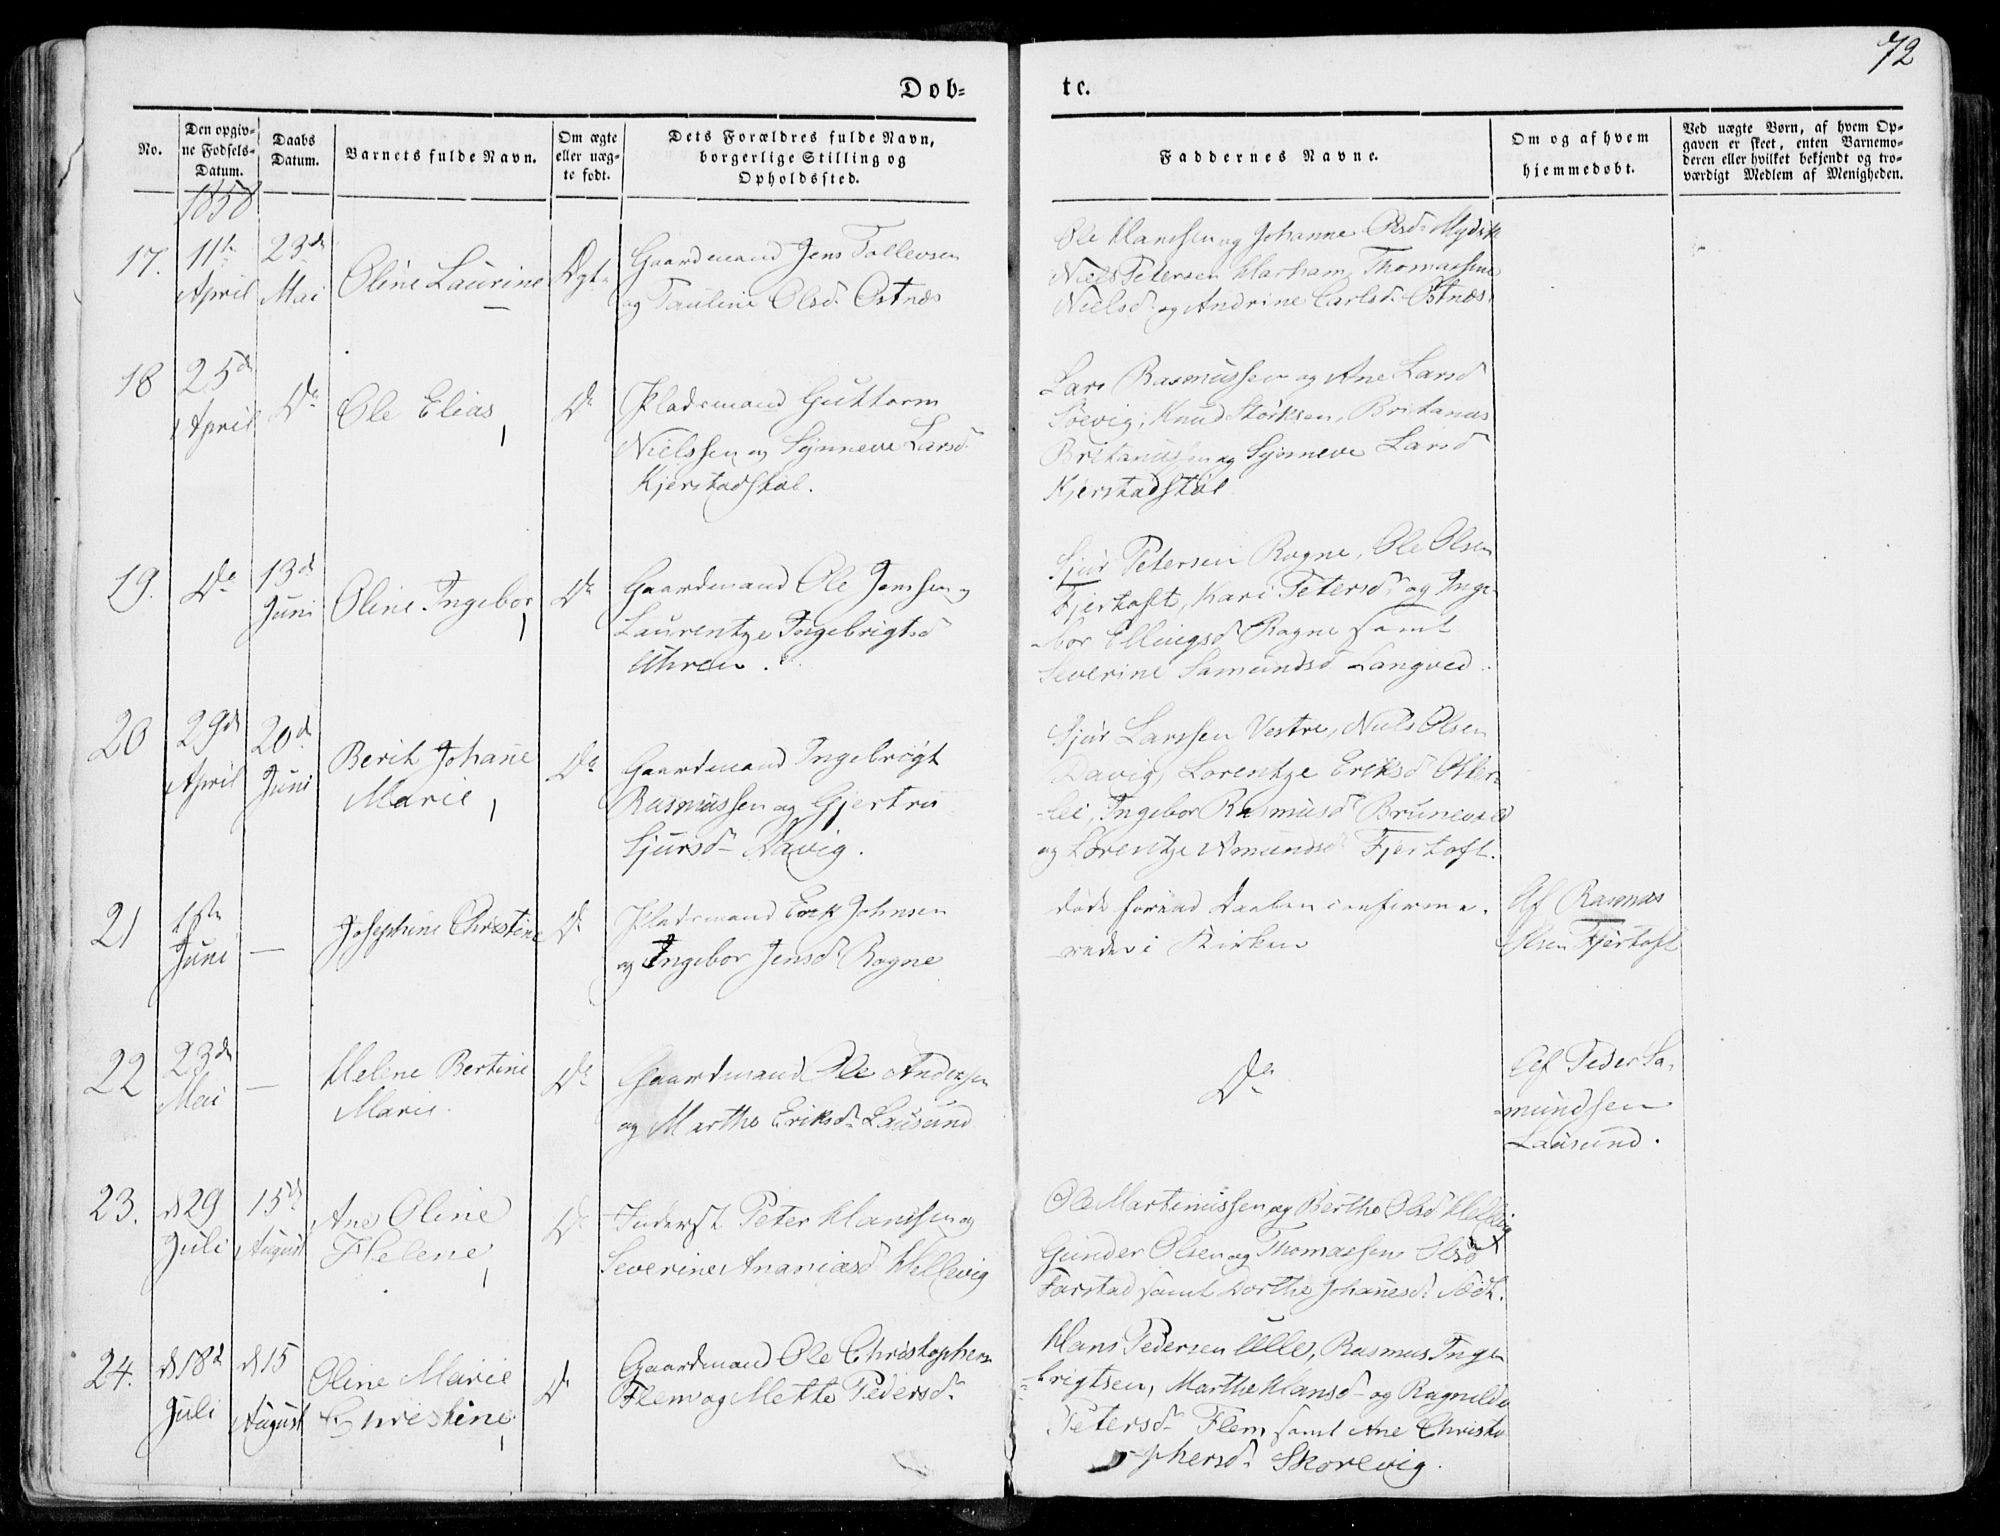 72
Døb-
te.
No.
Den opgiv-
ne Fødsels-
Datum.
Daabs
Datum.
Barnets fulde Navn.
Om ægte
eller uæg-
te født.
Dets Forældres fulde Navn,
borgerlige Stilling og
Opholdssted.
Faddernes Navne.
Om og af hvem
hjemmedøbt.
Ved uægte Børn, af hvem Op-
gaven er skeet, enten Barnemo-
deren eller hvilket bekjendt og tro-
værdigt Medlem af Menigheden.
1858
17.
11te
April
23de
Mai
Oline Laurine
Ægte
Gaardmand Jens Tollevsen
og Pauline Olsd. Østnæs
Ole Hanssen og Johanne Olsd.
Niels Petersen Harham, Thomassine
Nielsd. og Andrine Carlsd. Østnæs.
18
25de
April
Do
Ole Elias
Do
Pladsmand Guttorm
Nielssen og Synneve Larsd.
Kjerstadstøl.
Lars Rasmussen og Ane Larsd
Søevig, Knud Størksen, Britanus
Britanussen og Synneve Larsd
Kjerstadstøl
19.
Do
13de
Juni
Oline Ingebor
Do
Gaardmand Ole Jenssen og
Laurentze Ingebrigtsd
Uhren.
Sjur Petersen Rogne, Ole Olsen
Fjertoft, Kari Petersd. og Inge-
bor Ellingsd. Rogne samt
Severine Samundsd Longved.
20
29de
April
20de
Juni
Berit Johanne
Marie
Do
Gaardmand Ingebrigt
Rasmussen og Gjertru
Sjursd. Davig.
Sjur Larssen Vestre, Niels Olsen
Davig, Lorentze Eriksd Otter-
lei, Ingebor Rasmusd. Brunevold
og Lorentze Amundsd. Fjertoft.
21
1ste
Juni
—
Josephine Christine
Do
Pladsmand Erik Johnsen
og Ingebor Jensd. Rogne
døde forend Daaben confirme-
redes i Kirken
Af Rasmus
Olsen Fjertoft
22
23de
Mai
—
Helene Bertine
Marie.
Do
Gaardmand Ole Andersen
og Marthe Eriksd. Lausund
Do
Af Peder Sa-
mundsen
Lausund.
23.
d 29
Juli
15de
August
Ane Oline
Helene
Do
Inderst Peter Hanssen og
Severine Ananiasd Hellevig
Ole Martinussen og Berthe Olsd Hellevig
Gunder Olsen og Thomassine Olsd
Farstad samt Dorthe Johanesd.
24.
d 18de
Juli
d 15
August
Oline Marie
Christine
Do
Gaardmand Ole Christophers
Flem og Mette Pedersd.
Hans Pedersen Ulle, Rasmus Inge-
brigtsen, Marthe Hansd. og Ragnilde
Petersd. Flem samt Ane Christo-
phersd. Skorevig.